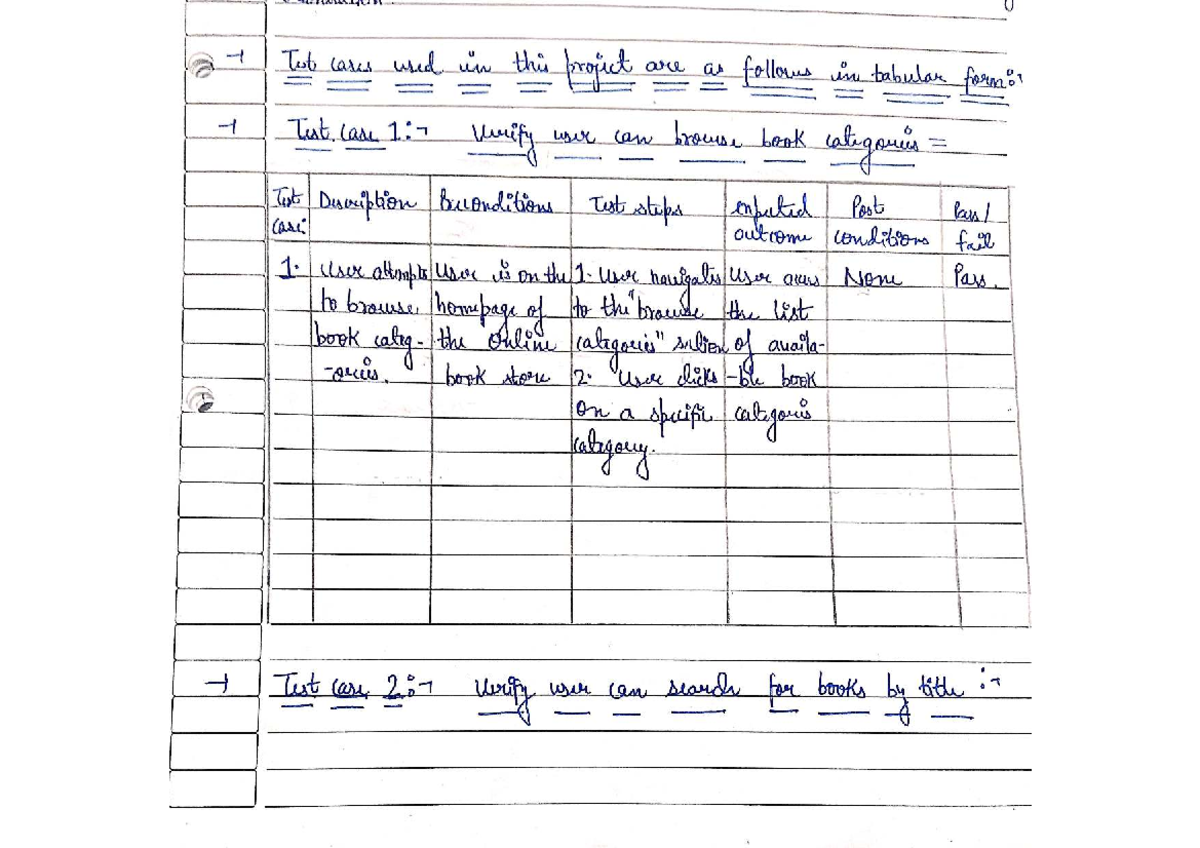 → Test cases used in this project are as follows in tabular form:-
→ Test case 1:- Verify user can browse book categories =
Test Description Preconditions Test steps expected Post Pass/
case: outcome conditions fail
1. User attempts User is on the 1. User navigates User views None Pass.
to browse homepage of to the "browse the list
book categ- the online categories" section of availa-
-ories. book store 2. User clicks -ble book
on a specific categories
category.
→ Test case 2:- Verify user can search for books by title :-